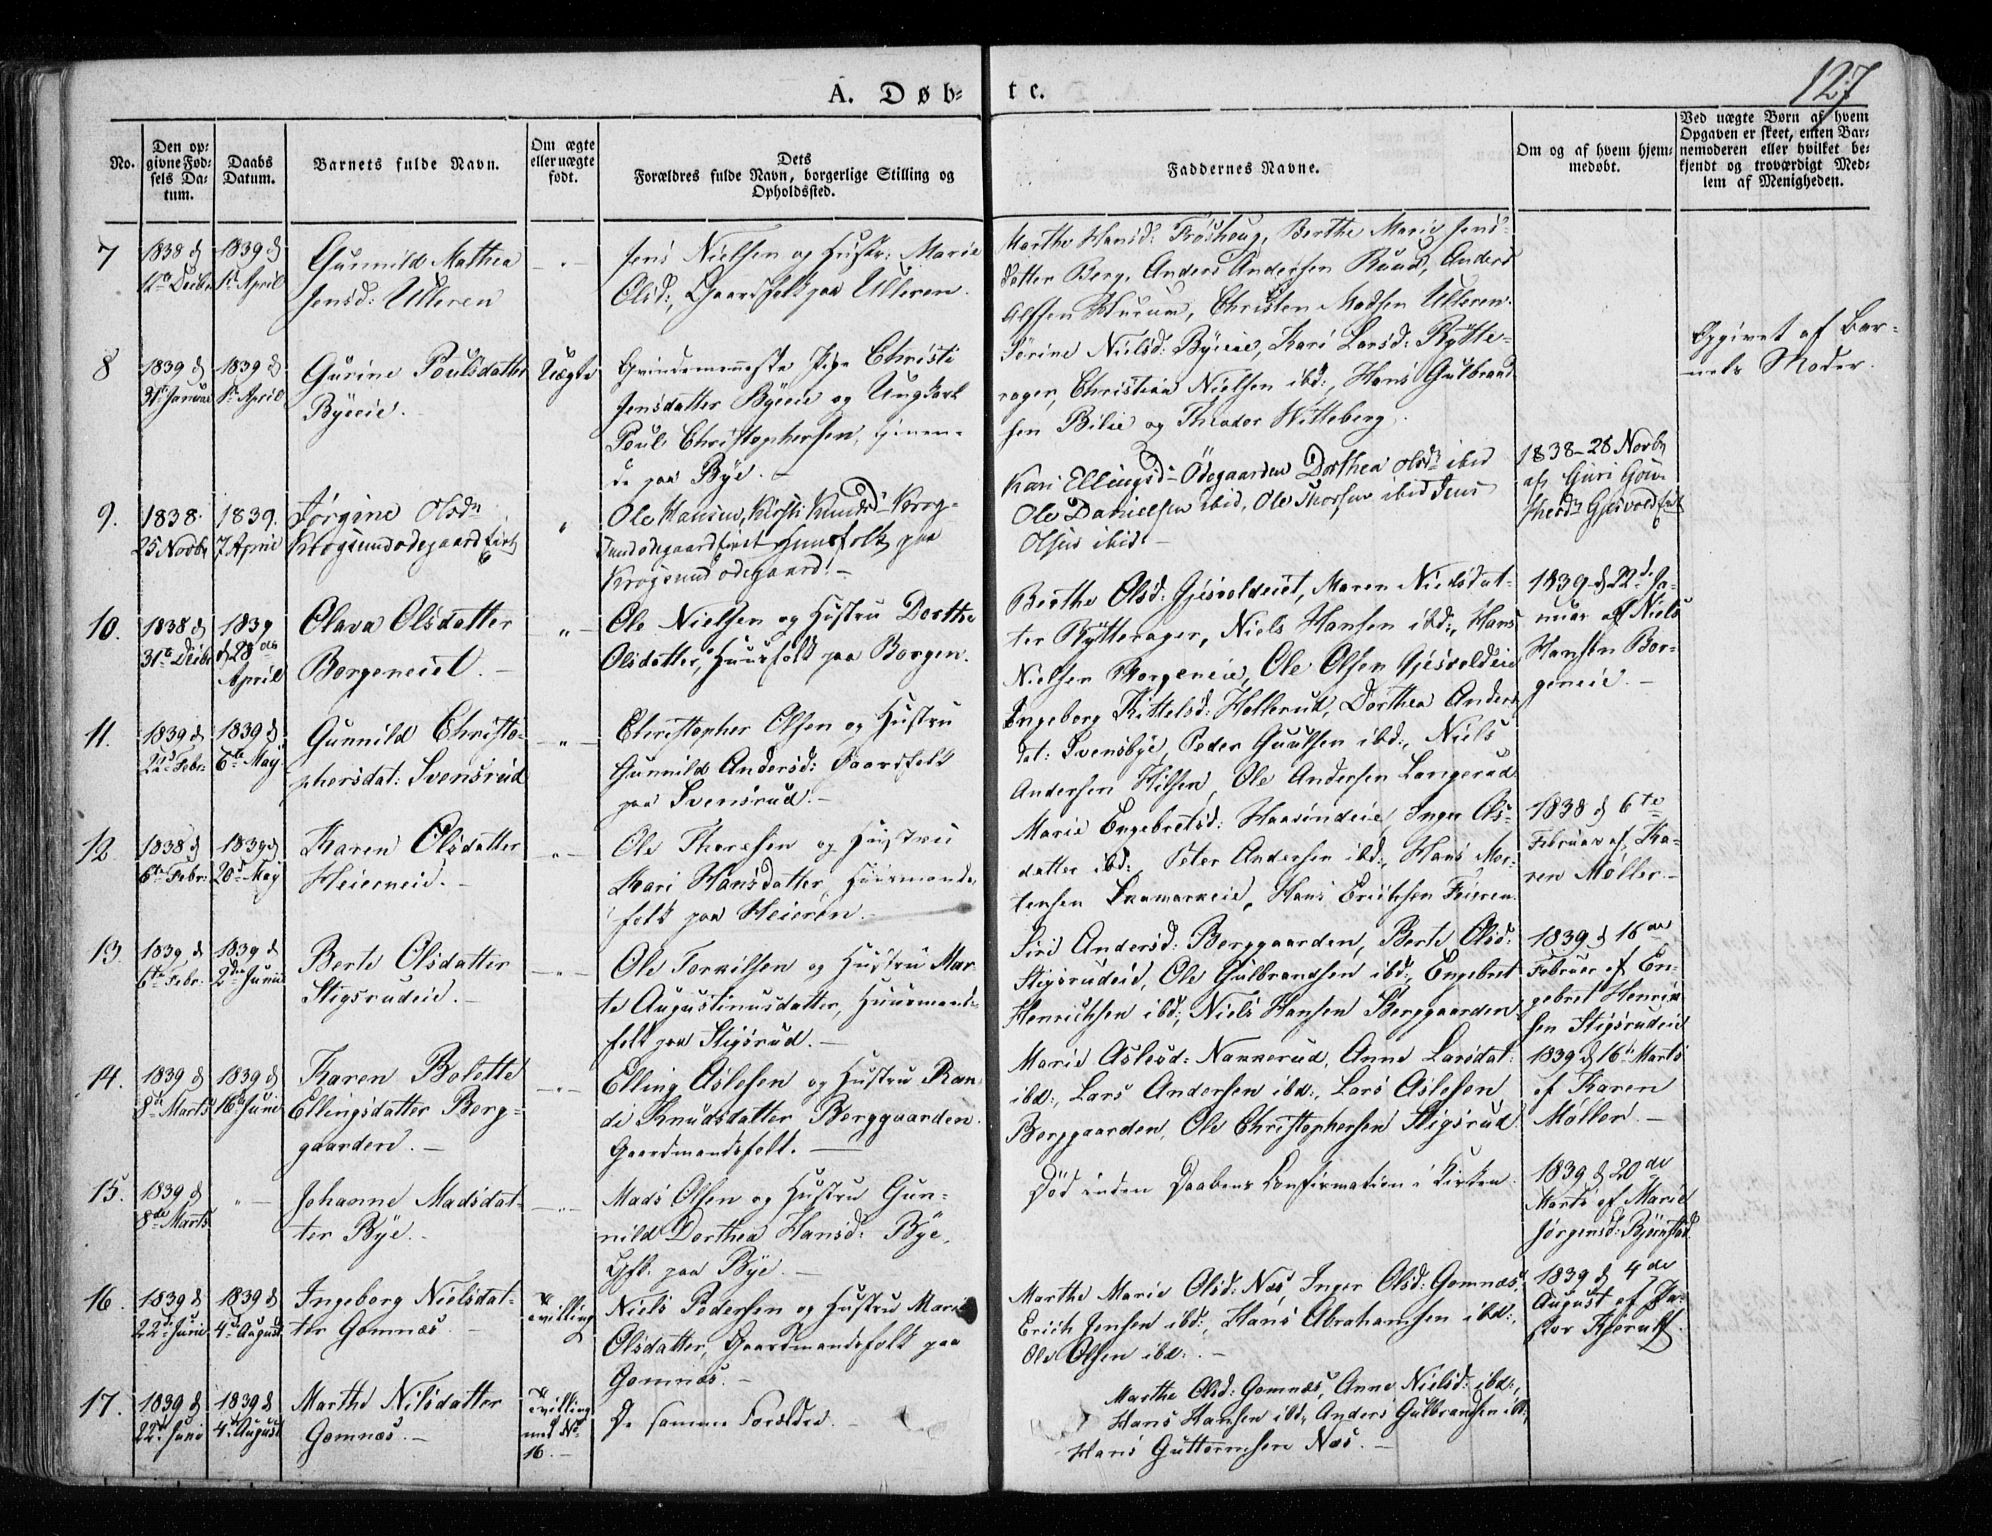 127
A. Døb-te.
No.
Den op-
givne Fød-
sels Da-
tum.
Daabs
Datum.
Barnets fulde Navn.
Om ægte
eller uægte
født.
Dets
Forældres fulde Navn, borgerlige Stilling og
Opholdssted.
Faddernes Navne.
Om og af hvem hjem-
medøbt.
Ved uægte Børn af hvem
Opgaven er skeet, enten Bar-
nemoderen eller hvilket be-
kjendt og troværdigt Med-
lem af Menigheden.
7
1838 d
Decbr
1839 d
1ste April
Gunnild Mathea
Jensd: Ulleren
Jens Nielsen og Hustr: Marie
Olsd:, Gaardfolk paa Ulleren.
Marthe Hansd: Frøshoug, Berthe Marie Jens-
datter Berg, Anders Andersen Ruud, Anders
Alfsen Hurum, Christen Madsen Ulleren.
8
1839 d
31te Januar
1839 d
1ste April
Gurine Poulsdatter
Byeeie.
Uægte
Qvindemenneske Pige Christi
Jensdatter Byeeie og Ungkarl
Poul Christophersen, tjenen-
de paa Bye.
Sørine Nielsd: Byeeie, Kari Larsd: Rytte-
rager, Christian Nielsen ibd:, Hans Gulbrand-
sen Bilie og Theodor Witteberg.
Opgivet af Bar-
nets Moder.
9.
1838.
25 Novbr
1839.
7 April
Jørgine Olsdr
Krogsundødegaard Eiet
Ole Hansen, Kirsti Knudsdr Krog-
sundødegaardseiet Huusfolk paa
Krogsund ødegaard.
Kari Ellingsdr Ødegaarden Dorthea Olsdr ibid
Ole Danielsen ibid, Ole Thorsen ibid Jens
Olsen ibid.
1838-28 Novbr
af Guri
Gjesvold Eiet
10.
1838 d
31te Decbr
1839
d 28de
April
Olava Olsdatter
Borgeneiet.
Ole Nielsen og Hustru Dorthe
Olsdatter, Huusfolk paa Borgen.
Berthe Olsd: Gjesvoldeiet, Maren Nielsdat-
ter Rytterager, Niels Hansen ibd:, Hans
Nielsen Borgeneie, Ole Olsen Gjesvoldeie
1839 d 22de Ja-
nuar af Niels
Hansen Bor-
geneie.
11.
1839 d
22de Febr:
1839 d
6te May
Gunnild Christo-
phersdat: Svensrud
Christopher Olsen og Hustru
Gunnild Andersd: Gaardfolk
paa Svensrud.
Ingeborg Kittelsd: Hollerud, Dorthea Anders-
dat: Svensbye, Peder Guulsen ibd:, Niels
Andersen Hilsen, Ole Andersen Langerud
12
1838 d
6te Febr:
1839 d
20de May
Karen Olsdatter
Heiereneie.
Ole Thoresen og Hustru
Kari Hansdatter, Huusmands-
folk paa Heieren.
Marie Engebretsd: Haarindeie, Inger Ols-
datter ibd:, Peter Andersen ibd:, Hans Mor-
tensen Skamarkeie, Hans Erichsen Feieren.
1838 d 6te
Februar af Ka-
ren Møller.
13
1839 d
6te Febr:
1839 d
2den Junii
Berte Olsdatter
Stigsrudeie.
Ole Torkilsen og Hustru Mar-
te Augustinusdatter, Huusmands-
folk paa Stigsrud.
Siri Andersd: Berggaarden, Berte Olsd:
Stigsrudeie, Ole Gulbrandsen ibd:, Engebret
Henrichsen ibd:, Niels Hansen Berggaarden
1839 d 16de
Februar af En-
gebret Henrik-
sen Stigsrudeie
14.
1839 d
8de Marts
1839 d
16de Junii
Karen Bolette
Ellingsdatter Berg-
gaarden.
Elling Aslesen og Hustru Ran-
di Knudsdatter Berggaarden.
Gaardmandsfolk.
Marie Aslesd: Nakkerud, Anne Larsdat:
ibd:, Lars Andersen ibd:, Lars Aslesen
Berggaarden, Ole Christophersen Stigsrud
1839 d 16de Marts
af Karen
Møller.
15.
1839 d
8de Marts
Johanne Madsdat-
ter Bye.
Mads Olsen og Hustru Gun-
nild Dorthea Hansd: Bye,
Gfl: paa Bye.
Død inden Daabens Confirmation i Kirken.
1839 d 20de
Marts af Marie
Jørgensd: Bjørnstad
16.
1839 d
22de Junii
1839 d
4de August
Ingeborg Nielsdat-
ter Gomnæs.
Tvilling
Niels Pedersen og Hustru Marie
Olsdatter, Gaardmandsfolk paa
Gomnæs.
Marthe Marie Olsd: Næs, Inger Olsd: Gomnæs,
Erich Jensen ibd:, Hans Abrahamsen ibd:,
Ole Olsen ibd:.
1839 d 4de
August af Pa-
stor Kjerulf.
17.
1839 d
22de Junii
1839 d
4de August
Marthe Nilsdatter
Gomnæs.
Tvilling
med No
16.
De samme Forældre.
Marthe Olsd: Gomnæs, Anne Nielsd: ibd:,
Hans Hansen ibd:, Anders Gulbrandsen ibd:,
Hans Guttormsen Næs.